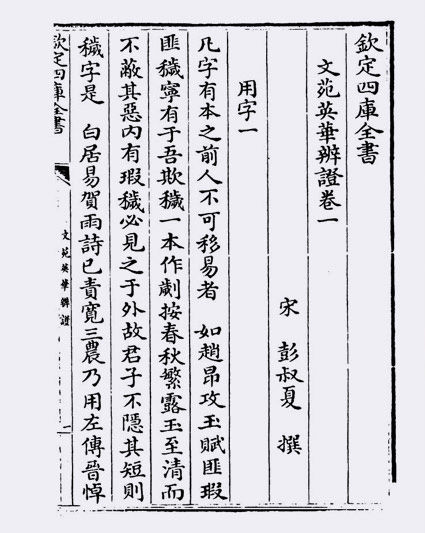 欽定四庫全書
文苑英華辨證卷一
宋 彭叔夏 撰
用字一
凡字有本之前人不可移易者 如趙昂攻玉賦匪瑕
匪穢寧有于吾欺穢一本作劌按春秋繁露玉至清而
不蔽其惡内有瑕穢必見之于外故君子不隱其短則
穢字是 白居易賀雨詩已責寛三農乃用左傳晉悼
欽定四庫全書
文苑英華辯證